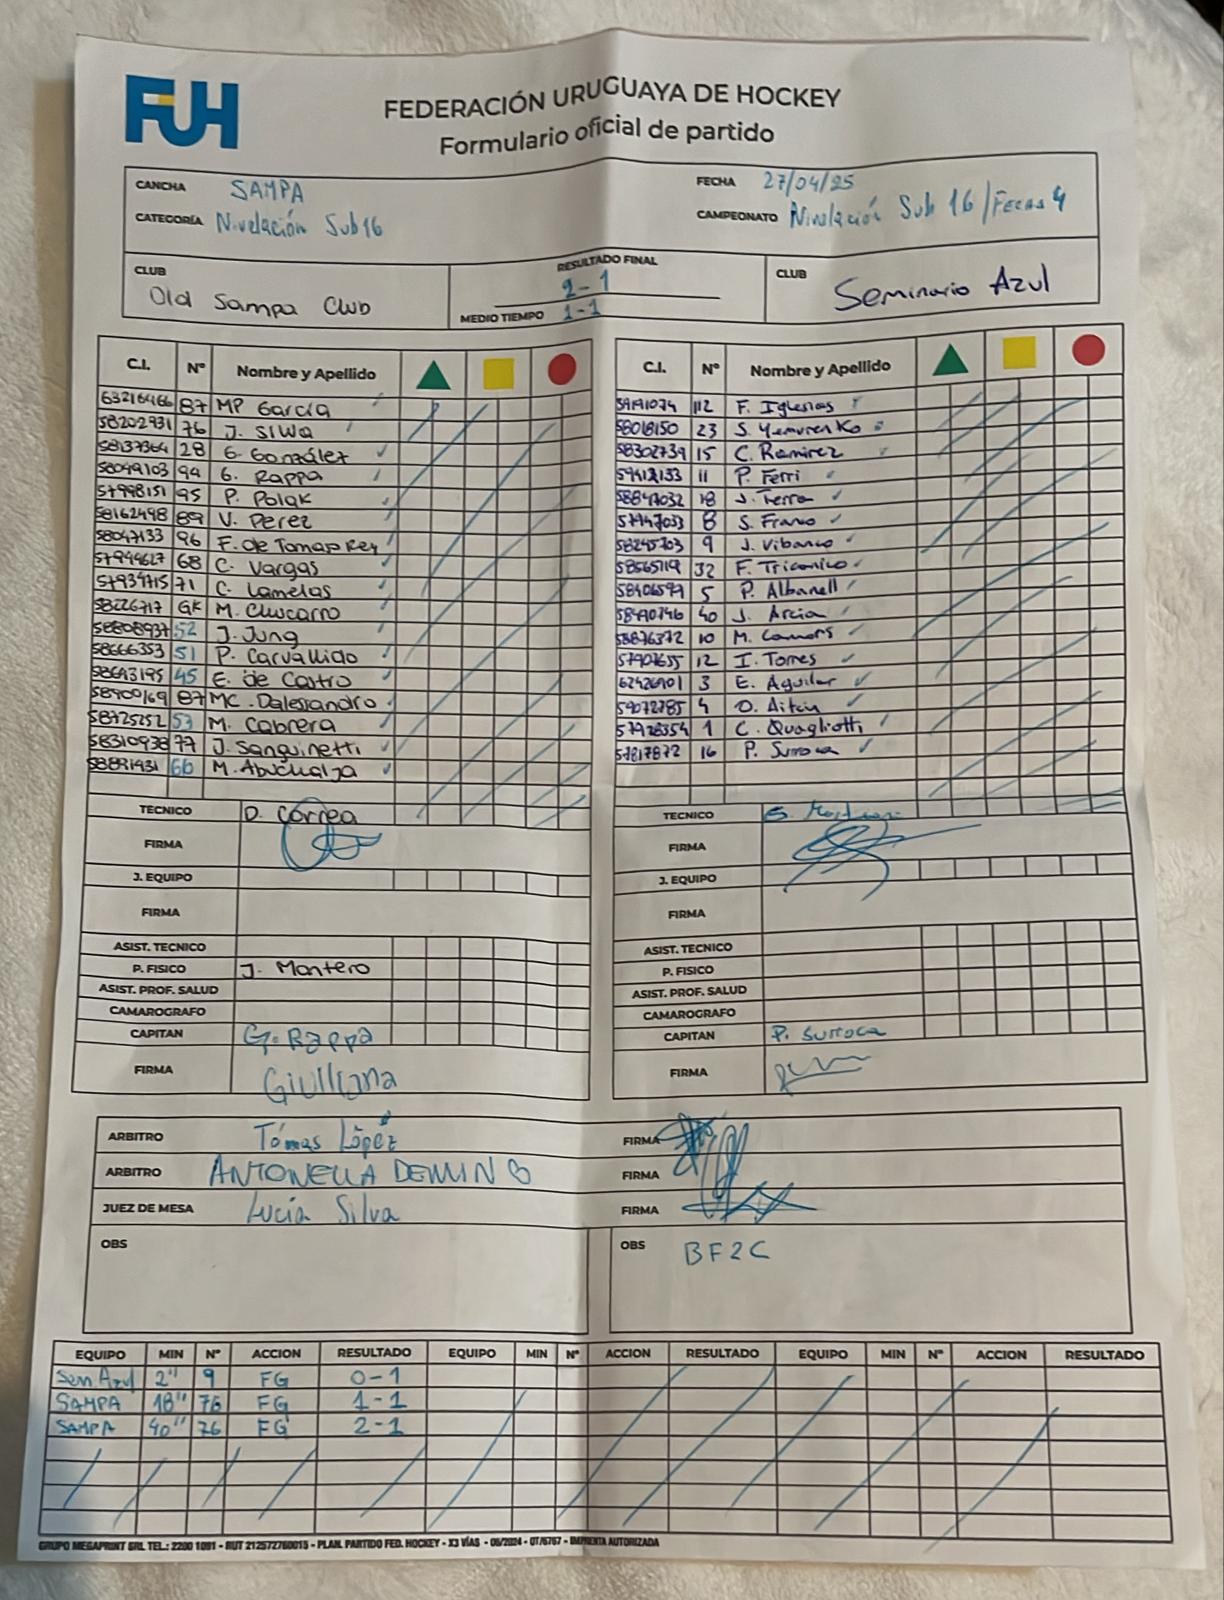 FUH
FEDERACIÓN URUGUAYA DE HOCKEY
Formulario oficial de partido
CANCHA SAMPA
FECHA 27/04/25
CATEGORÍA Nivelación Sub16
CAMPEONATO Nivelación Sub 16 / Fecha 4
CLUB Old Sampa Club
RESULTADO FINAL 2-1
MEDIO TIEMPO 1-1
CLUB Seminario Azul
C.I. Nº Nombre y Apellido
63216466 87 MP Garcia
58202931 76 J. Silva
58137364 28 G. González
58049103 94 G. Rappa
57998151 95 P. Polak
58162498 89 V. Perez
58047133 96 F. de Tomas Rey
57944627 68 C. Vargas
57934715 71 C. Lamelas
58226717 GK M. Chiscarro
58808937 52 J. Jung
58666353 51 P. Carvallido
58643195 45 E. de Castro
58900169 87 MC. Dalessandro
58725252 57 M. Cabrera
58310938 77 J. Sanguinetti
58891931 66 M. Abuchalja
TECNICO D. Correa
FIRMA
J. EQUIPO
FIRMA
ASIST. TECNICO
P. FISICO J. Montero
ASIST. PROF. SALUD
CAMAROGRAFO
CAPITAN G. Rappa
FIRMA Giulliana
C.I. Nº Nombre y Apellido
59191074 112 F. Iglesias
58018150 23 S. Yemurenko
58302739 15 C. Ramirez
59412133 11 P. Ferri
58847032 18 J. Terra
57947033 8 S. Franco
58245703 9 J. Vibanco
58565119 32 F. Triconico
58406597 5 P. Albanell
58490746 40 J. Arcia
58876372 10 M. Camors
57907655 12 I. Torres
62426901 3 E. Aguilar
59072785 4 O. Aitcin
57928354 1 C. Quagliotti
57817872 16 P. Surroca
TECNICO
FIRMA
J. EQUIPO
FIRMA
ASIST. TECNICO
P. FISICO
ASIST. PROF. SALUD
CAMAROGRAFO
CAPITAN P. Surroca
FIRMA
ARBITRO Tómas López FIRMA
ARBITRO ANTONELLA FIRMA
JUEZ DE MESA Lucía Silva FIRMA
OBS
OBS BF2C
EQUIPO MIN Nº ACCION RESULTADO EQUIPO MIN Nº ACCION RESULTADO EQUIPO MIN Nº ACCION RESULTADO
Sem Azul 2" 9 FG 0-1
SAMPA 18" 76 FG 1-1
SAMPA 40" 76 FG 2-1
GRUPO MEGAPRINT SRL TEL.: 2200 1091 - RUT 212572760015 - PLAN. PARTIDO FED. HOCKEY - X3 VÍAS - 06/2024 - OT/6767 - IMPRENTA AUTORIZADA